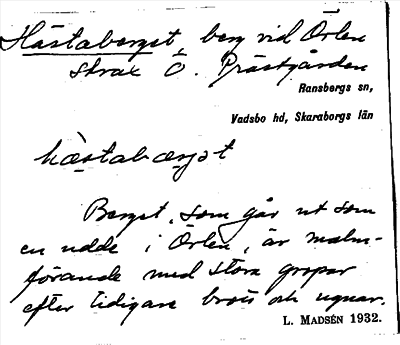 Hästaberget, berg vid Örlen
strax Ö. Prästgården
Ransbergs sn,
Vadsbo hd, Skaraborgs län
hæstabærget
Berget, som går ut som
en udde i Örlen, är malm-
förande med stora gropar
efter tidigare brott och ugnar.
L. MADSÉN 1932.